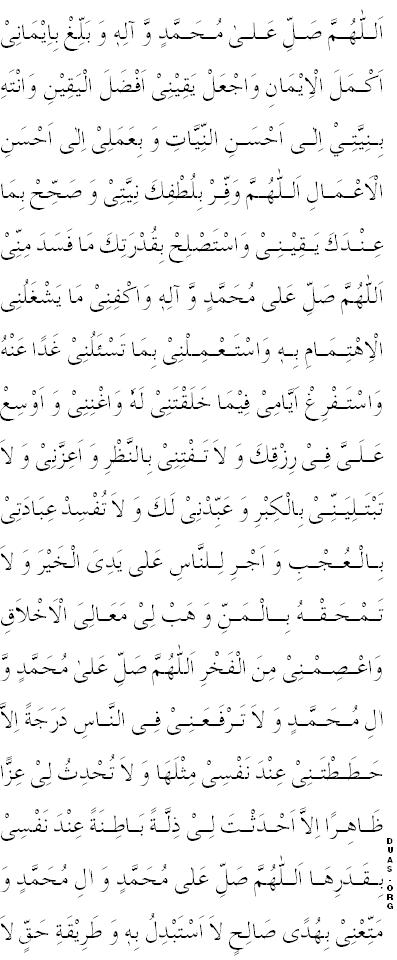 اَللّٰهُمَّ صَلِّ عَلىٰ مُحَمَّدٍ وَّ آلِهٖ وَ بَلِّغْ بِاِيْمَانِیْ
اَكْمَلَ الْاِيْمَانِ وَاجْعَلْ يَقِيْنِیْ اَفْضَلَ الْيَقِيْنِ وَانْتَهِ
بِنِيَّتِيْ اِلٰی اَحْسَنِ النِّيَّاتِ وَ بِعَمَلِیْ اِلٰی اَحْسَنِ
الْاَعْمَالِ اَللّٰهُمَّ وَفِّرْ بِلُطْفِكَ نِيَّتِیْ وَ صَحِّحْ بِمَا
عِنْدَكَ يَقِيْنِیْ وَاسْتَصْلِحْ بِقُدْرَتِكَ مَا فَسَدَ مِنِّیْ
اَللّٰهُمَّ صَلِّ عَلٰی مُحَمَّدٍ وَّ آلِهٖ وَاكْفِنِیْ مَا يَشْغَلُنِی
الْاِهْتِمَامِ بِهٖ وَاسْتَعْمِلْنِیْ بِمَا تَسْئَلُنِیْ غَدًا عَنْهُ
وَاسْتَفْرِغْ اَيَّامِیْ فِيْمَا خَلَقْتَنِیْ لَهٗ وَاَغْنِنِیْ وَ اَوْسِعْ
عَلَیَّ فِیْ رِزْقِكَ وَ لاَ تَفْتِنِیْ بِالنَّظْرِ وَ اَعِزَّنِیْ وَ لاَ
تَبْتَلِيَنِّیْ بِالْكِبْرِ وَ عَبِّدْنِیْ لَكَ وَ لاَ تُفْسِدْ عِبَادَتِیْ
بِالْعُجْبِ وَ اَجْرِ لِلنَّاسِ عَلٰی يَدِیَ الْخَيْرَ وَ لاَ
تَمْحَقْهُ بِالْمَنِّ وَ هَبْ لِیْ مَعَالِیَ الْاَخْلاَقِ
وَاعْصِمْنِیْ مِنَ الْفَخْرِ اَللّٰهُمَّ صَلِّ عَلىٰ مُحَمَّدٍ وَّ
اٰلِ مُحَمَّدٍ وَ لاَ تَرْفَعَنِیْ فِی النَّاسِ دَرَجَةً اِلاَّ
حَطَطْتَنِیْ عِنْدَ نَفْسِیْ مِثْلَهَا وَ لاَ تُحْدِثْ لِیْ عِزًّا
ظَاهِرًا اِلاَّ اَحْدَثْتَ لِیْ ذِلَّةً بَاطِنَةً عِنْدَ نَفْسِیْ
بِقَدَرِهَا اَللّٰهُمَّ صَلِّ عَلٰی مُحَمَّدٍ وَ اٰلِ مُحَمَّدٍ وَ
مَتِّعْنِیْ بِهُدًی صَالِحٍ لاَ اَسْتَبْدِلُ بِهٖ وَ طَرِيْقَةِ حَقٍّ لاَ
DUAS.ORG